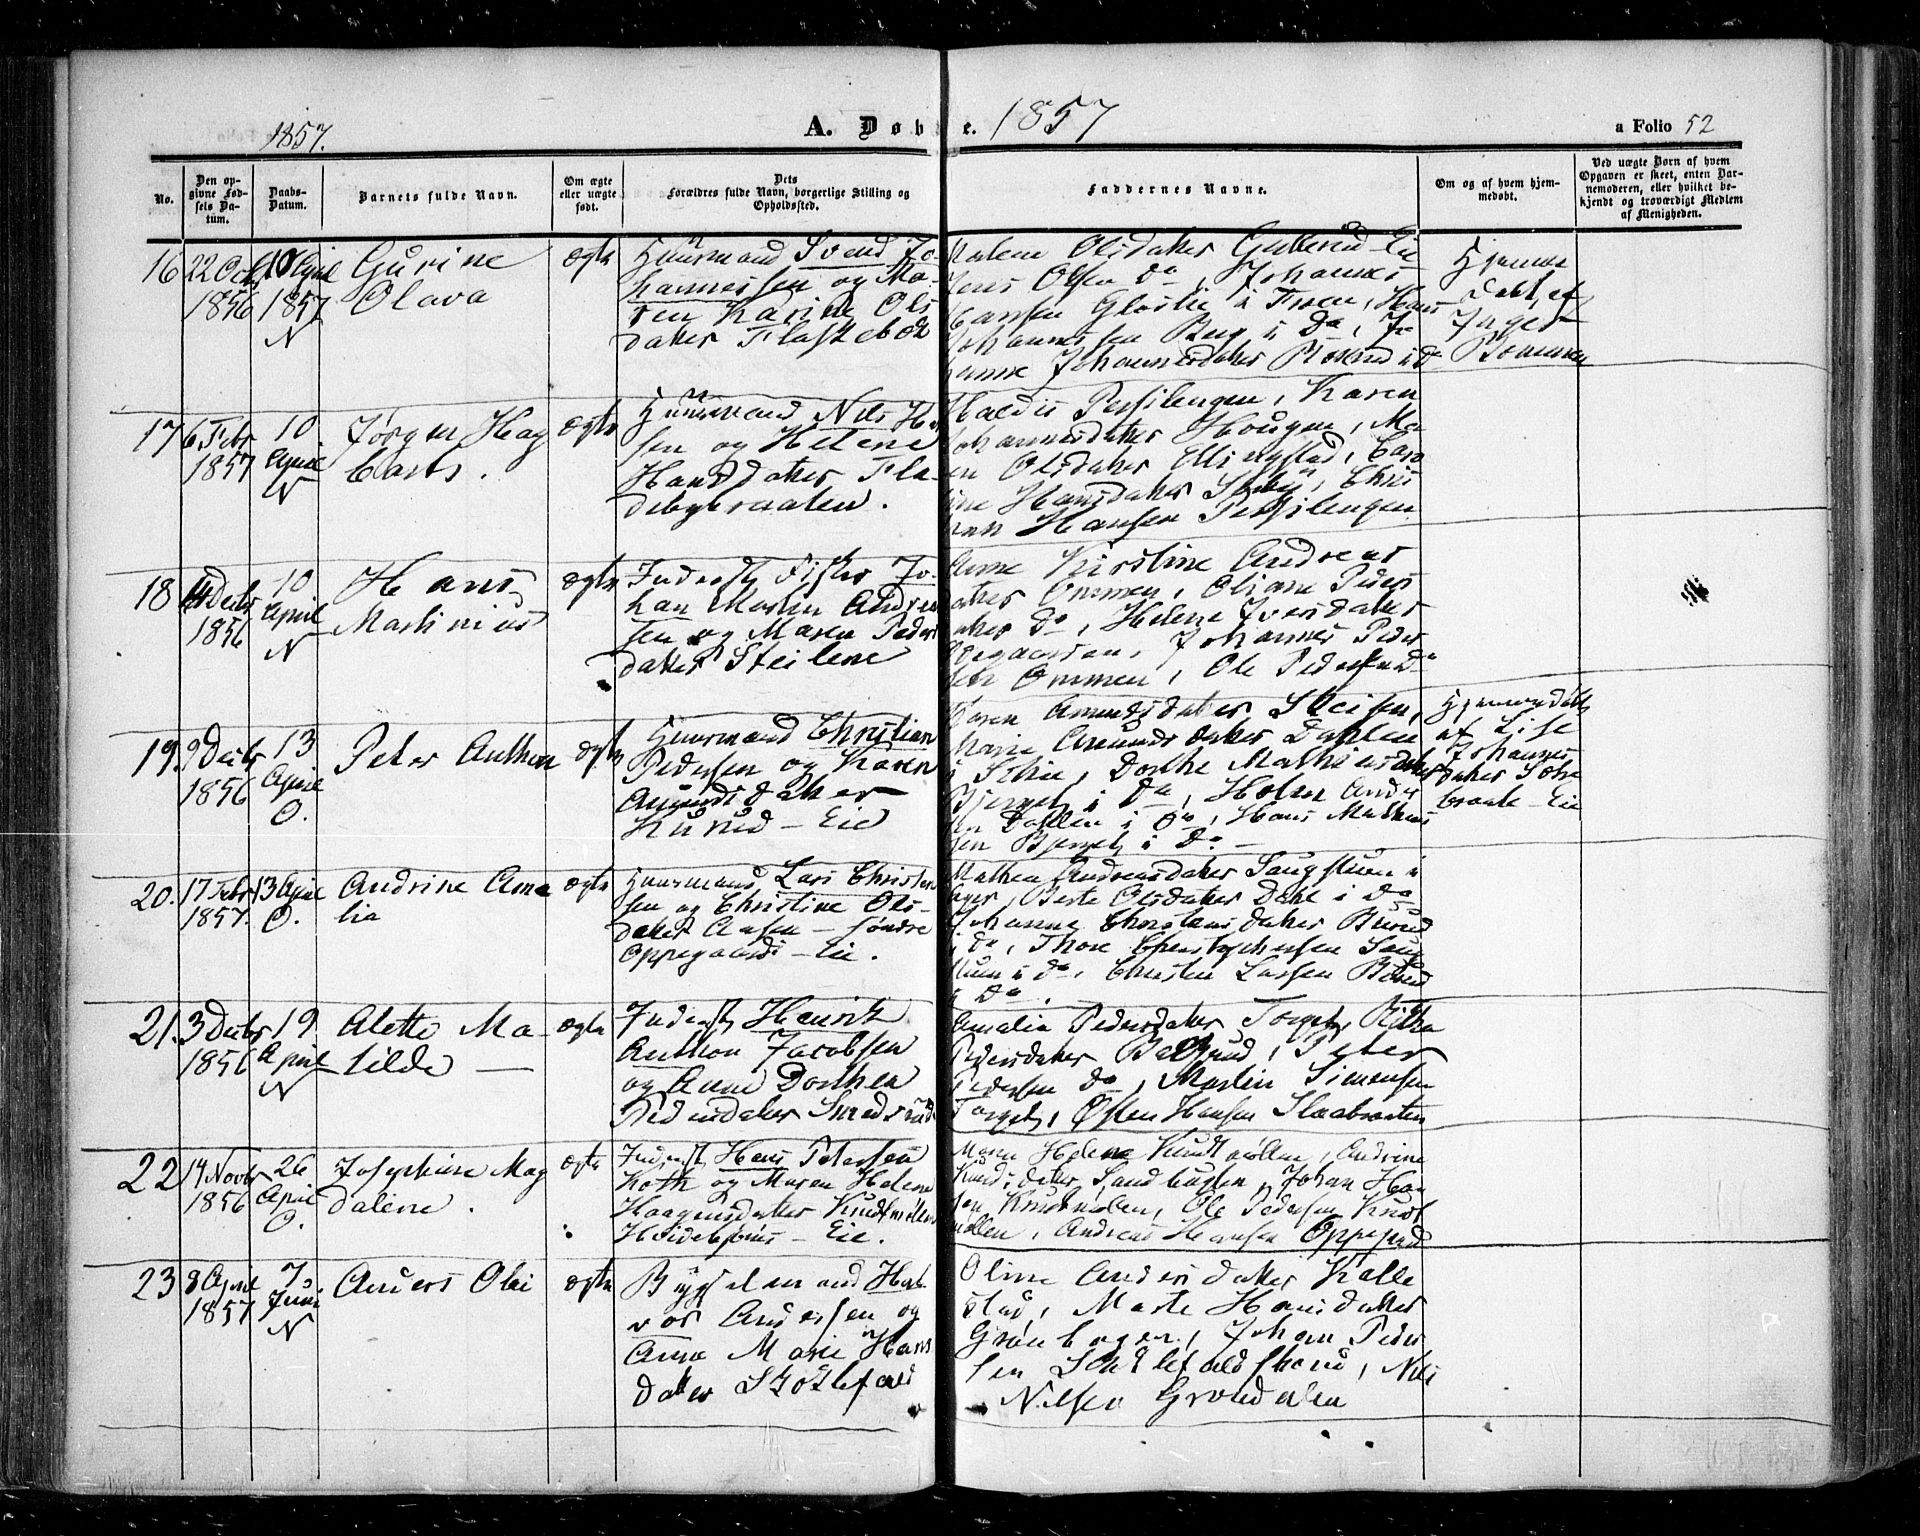 1857.
A. Døb e. 1857
a Folio 52
No.
Den op-
givne Fød-
sels Da-
tum.
Daabs-
Datum.
Barnets fulde Navn.
Om ægte
eller uægte
født.
Dets
Forældres fulde Navn, borgerlige Stilling og
Opholdssted.
Faddernes Navne.
Om og af hvem hjem-
medøbt.
Ved uægte Børn af hvem
Opgaven er skeet, enten Bar-
nemoderen, eller hvilket be-
kjendt og troværdigt Medlem
af Menigheden.
16
22 Octb
1856
10 April
1857
N
Gurine
Olava
ægte
Huusmand Svend Jo-
hannessen og Ma-
ren Karine Ols
datter Flaskebæk
Malene Olsdatter Eie
Jens Olsen do, Johannes
Hansen i Froen, Hans
Johannessen Berg i do, Jo
hanne Johannesdatter i do
Hjemme
døbt af
Inger
17
6 Febr
1857
10
April
N
Jørgen Hag
barth.
ægte
Huusmand Nils Han
sen og Helene
Hansdatter Fla-
debybraaten.
Persilengen, Karen
Johannesdatter Hougen, Ma
ren Olsdatter Ellingstad, Caro
line Hansdatter Chris
tian Hansen Persilengen
18
4 Decbr
1856
10
April
N
Hans
Martinius
ægte
Inderst, Fisker Jo-
han Martin Andre
sen og Maren Peders
datter Steilene
Anne Kirstine Andreas
datter Ommen, Oliane Peders
datter do, Helene Iversdatter
Johannes Peder
sen Ommen, Ole Pedersen do
19.
9 Decbr
1856
13
April
O.
Peter Anthon
ægte
Huusmand Christian
Pedersen og Karen
Amundsdatter
Kurud - Eie
Karen Amundsdatter
Marie Amundsdatter Dahlen
i Dorthe Mathisdatter
Bjerget i do, Anders
sen Dahlen i do, Hans Mathis
sen Bjerget i do -
Hjemmedøbt
af Lise
Johannes
datter
braate - Eie
20.
17 Febr
1857.
13 April
O.
Andrine Ama
lia
ægte
Huusmand Lars Christen
sen og Christine Ols-
datter Aasen - søndre
Oppegaard - Eie.
Mathea Andreasdatter Saugstuen i
Berte Olsdatter Dahl i do
Johanne Christensdatter Burud
i do, Thore Christophersen Saug
stuen i do, Christen Larsen Burud
i do.
21.
3 Decbr
1856
19
April
N
Alette Ma-
tilde
ægte
Inderst Henrik
Anthon Jacobsen
og Anne Dorthea
Pedersdatter
Amalia Pedersdatter Torget,
Pedersdatter Peter
Pedersen do, Martin Simensen
Torget, Østen Hansen Slaabraaten
22
14 Novbr
1856
26
April
O.
Josephine Mag
dalene.
ægte
Inderst Hans Petersen
Roth og Maren Helene
Haagensdatter Knudtmøllen
- Eie.
Maren Helene Knudtmøllen, Andrine
Knudsdatter Sandbugten, Johan Han
sen Knudtmøllen, Ole Pedersen Knudt
møllen, Andreas Hansen Oppegrd
23
8 April
1857
7
Juni
N
Anders Olai
ægte
Bygselmand Hal-
vor Andersen og
Anne Marie Hans
datter Skoklefald
Oline Andersdatter Kolle
stad, Marte Hansdatter
Grønhager, Johan Peder
sen Skoklefaldstrand, Nils
Nilsen Grøndalen